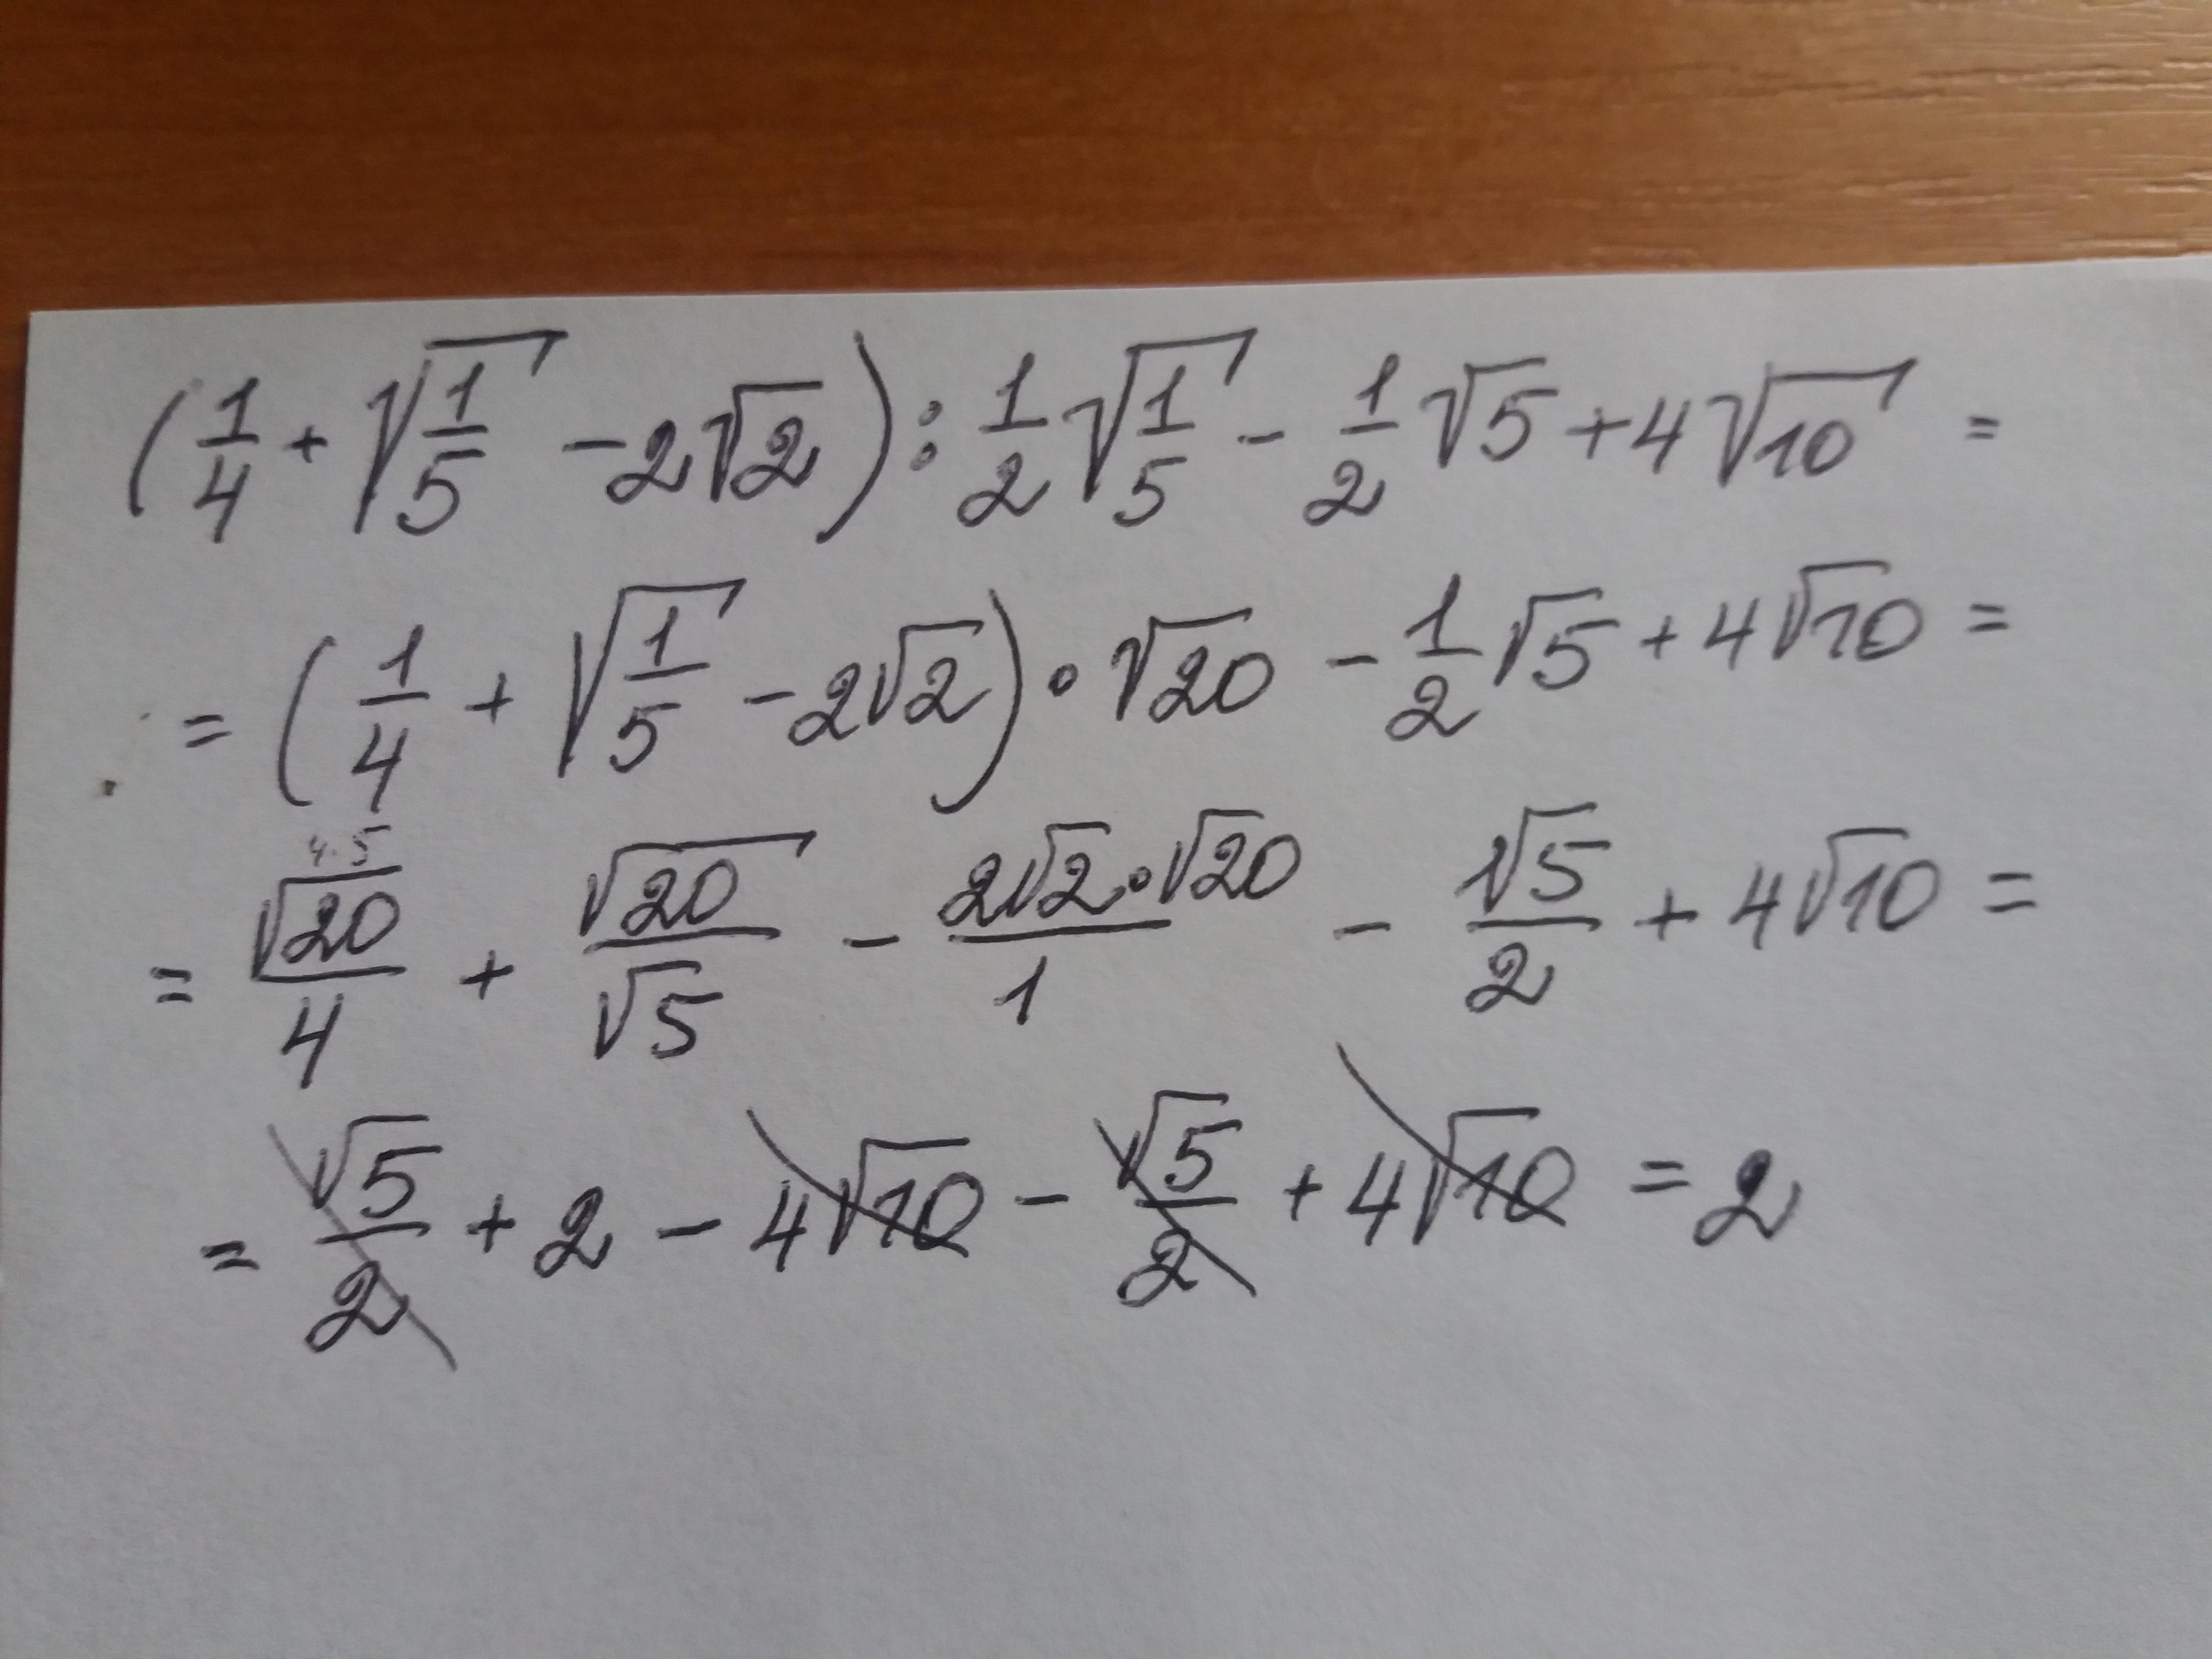 (1/4 + √(1/5) − 2√2) : 1/2 √(1/5) − 1/2 √5 + 4√10 =
= (1/4 + √(1/5) − 2√2) · √20 − 1/2 √5 + 4√10 =
4·5
= √20/4 + √20/√5 − 2√2·√20/1 − √5/2 + 4√10 =
= √5/2 + 2 − 4√10 − √5/2 + 4√10 = 2